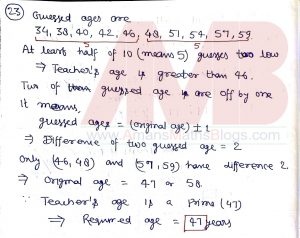 23 Guessed ages are
34, 38, 40, 42, 46, 48, 51, 54, 57, 59
5 5
At least half of 10 (means 5) guesses too low
⇒ Teacher's age is greater than 46.
Two of guessed age is are off by one
It means,
guessed ages = (original age) ± 1
⇒ Difference of two guessed age = 2
Only (46, 48) and (57, 59) have difference 2.
⇒ Original age = 47 or 58
∵ Teacher's age is a Prime (47)
⇒ Required age = 47 years